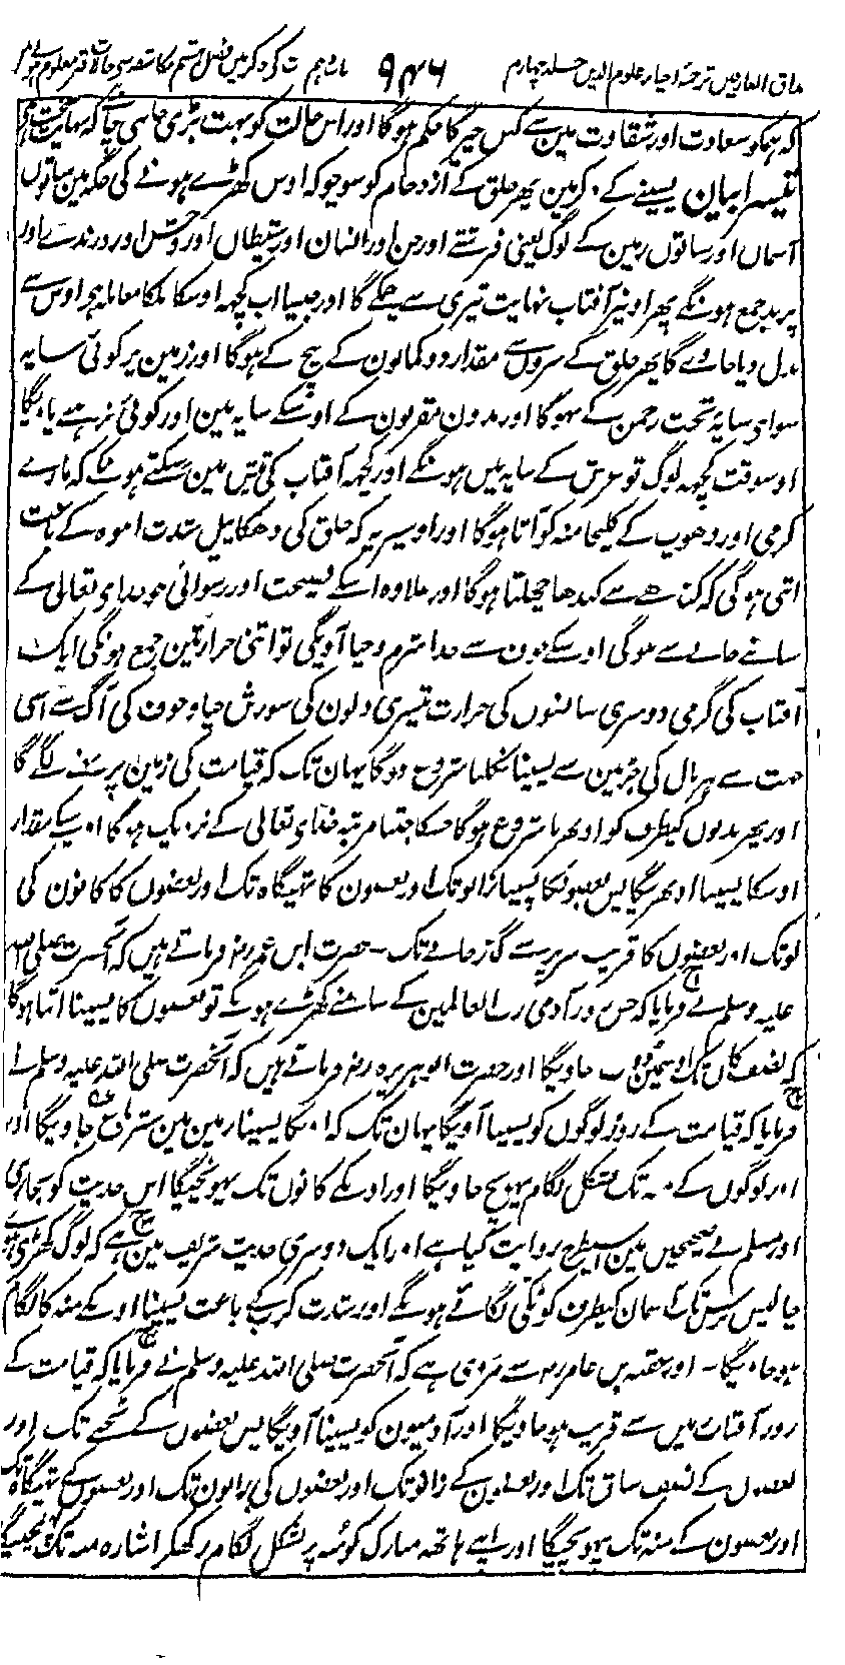 مذاق العارفین ترجمہ احیاء علوم الدین جلد چہارم ۹۴۶ باب دہم موت کے ذکر میں فصل ہشتم مکاشفہ سے حالات قبر معلوم ہونے میں
کہ ہمکو سعادت اور شقاوت مین سے کس چیز کا حکم ہوگا اور اس حالت کو بہت بڑی جاننی چاہئے کہ نہایت سخت ہی
تیسرا بیان پسینے کے ذکر مین پھر خلق کے ازدحام کو سوچو کہ اوس کھڑے ہونے کی جگہ مین ساتوں
آسمان اور ساتوں زمین کے لوگ یعنی فرشتے اور جن اور انسان اور شیطان اور وحش اور درندے اور
پرند جمع ہونگے پھر اونپر آفتاب نہایت تیزی سے چمکے گا اور جیسا اب کچھہ اوسکا ہلکا معاملہ ہی اوس سے
بدل دیا جاوے گا پھر خلق کے سروں سے مقدار دو کمانون کے بیچ کے ہوگا اور زمین پر کوئی سایہ
سوای سایۂ تحت رحمن کے نہوگا اور بدون مقربون کے اوسکے سایہ مین اور کوئی نرہنے پاویگا
اوسوقت کچھہ لوگ تو عرش کے سایہ میں ہونگے اور کچھہ آفتاب کی تپش مین سکتے ہونگے کہ مارے
گرمی اور دھوپ کے کلیجا منہ کو آتا ہوگا اور اوسپر یہ کہ خلق کی دھکا پیل شدت انبوہ کے باعث
اتنی ہوگی کہ کندھے سے کندھا چھلتا ہوگا اور علاوہ اسکے فضیحت اور رسوائی جو خدای تعالی کے
سامنے جانے سے ہوگی اوسکے خوف سے جدا شرم و حیا آویگی تو اتنی حرارتین جمع ہونگی ایک
آفتاب کی گرمی دوسری سانسوں کی حرارت تیسری دلون کی سوزش حیا و خوف کی آگ سے اسی
جہت سے ہر بال کی جڑ مین سے پسینا نکلنا شروع ہوگا یہان تک کہ قیامت کی زمین پر بہنے لگے گا
اور پھر بدنوں کیطرف کو اوبھرنا شروع ہوگا جسکا جتنا مرتبہ خدای تعالی کے نزدیک ہوگا اوسیکے مقدار
اوسکا پسینا اوبھریگا پس بعضونکا پسینا زانو تک اور بعضون کا تہیگاہ تک اور بعضوں کا کانون کی
لو تک اور بعضوں کا قریب سر پر سے گذر جانے تک - حضرت ابن عمر رضہ فرماتے ہیں کہ آنحضرت صلی اللہ
علیہ وسلم نے فرمایا کہ جس روز آدمی رب العالمین کے سامنے کھڑے ہونگے تو بعضوں کا پسینا اتنا ہوگا
کہ نصف کان تک اوسمین ڈوب جاویگا اور حضرت ابوہریرہ رضہ فرماتے ہیں کہ آنحضرت صلی اللہ علیہ وسلم نے
فرمایا کہ قیامت کے روز لوگوں کو پسینا آویگا یہان تک کہ اونکا پسینا زمین مین ستر باع جاویگا اور
اور لوگوں کے منہ تک بشکل لگام پہونچ جاویگا اور اونکے کانوں تک پہونچیگا اس حدیث کو بخاری
اور مسلم نے صحیحین مین اسیطرح روایت کیا ہے اور ایک دوسری حدیث شریف مین ہے کہ لوگ کھڑے ہونگے
چالیس برس تک آسمان کیطرف کو ٹکٹکی لگائے ہونگے اور شدت کرب کے باعث پسینا اونکے منہ کا لگام
ہوجاویگا - اور عقبہ بن عامر رضہ سے مروی ہے کہ آنحضرت صلی اللہ علیہ وسلم نے فرمایا کہ قیامت کے
روز آفتاب زمین سے قریب ہوجاویگا اور آدمیون کو پسینا آویگا پس بعضوں کے ٹخنے تک اور
بعضوں کے نصف ساق تک اور بعضون کے زانو تک اور بعضوں کی رانون تک اور بعضوں کے تہیگاہ تک
اور بعضون کے منہ تک پہونچیگا اور اپنے ہاتھہ مبارک کو منہ پر بشکل لگام رکھکر اشارہ منہ تک پہنچیگا